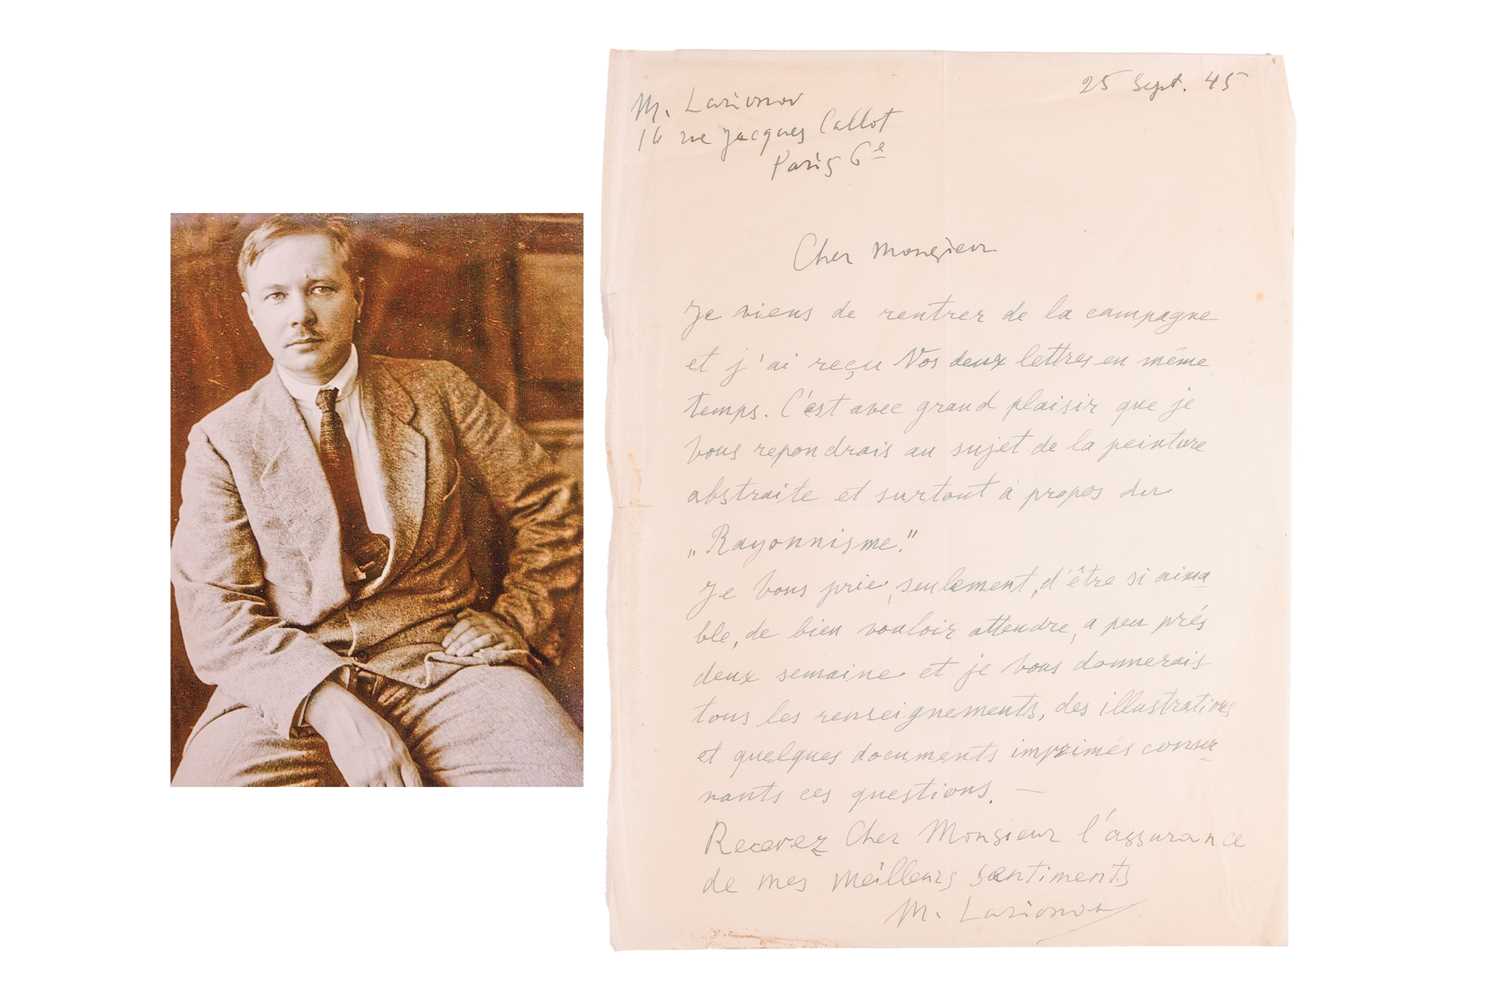 M. Larionov
16 rue Jacques Callot
Paris 6e
25 Sept. 45
Cher Monsieur
Je viens de rentrer de la campagne
et j'ai reçu Vos deux lettres en même
temps. C'est avec grand plaisir que je
Vous repondrais au sujet de la peinture
abstraite et surtout à propos du
„Rayonnisme."
Je Vous prie, seulement, d'être si aima
ble, de bien vouloir attendre, a peu prés
deux semaine et je Vous donnerais
tous les renseignements, des illustrations
et quelques documents imprimés conser
nants ces questions. —
Recevez Cher Monsieur l'assurance
de mes meilleurs sentiments
M. Larionov